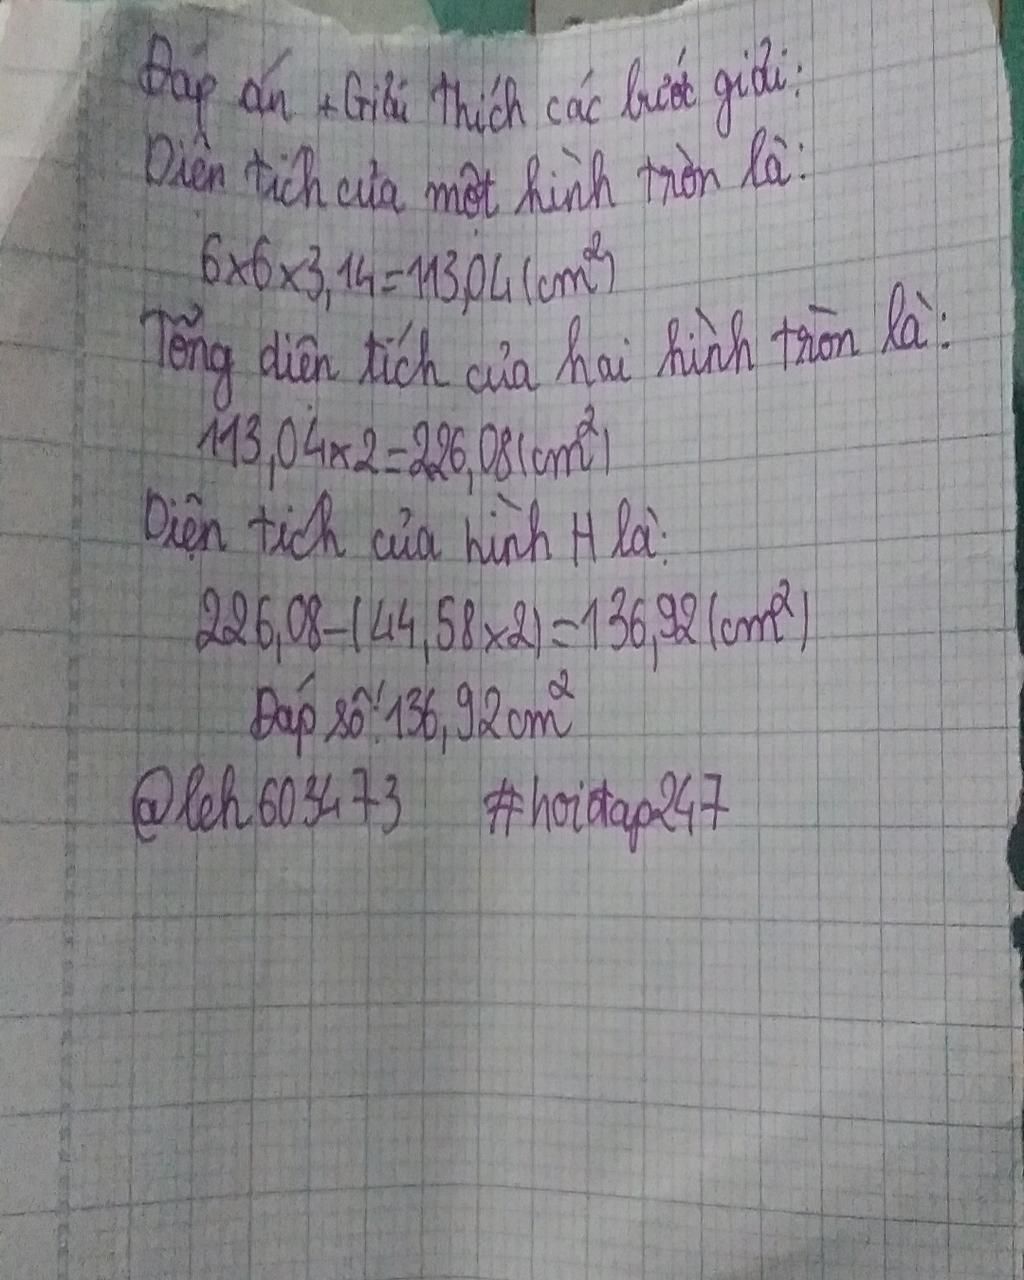 Đáp án + Giải thích các bước giải:
Diện tích của một hình tròn là:
6×6×3,14=113,04(cm²)
Tổng diện tích của hai hình tròn là:
113,04×2=226,08(cm²)
Diện tích của hình H là:
226,08-(44,58×2)=136,92(cm²)
Đáp số: 136,92cm²
@leh603473 #hoidap247